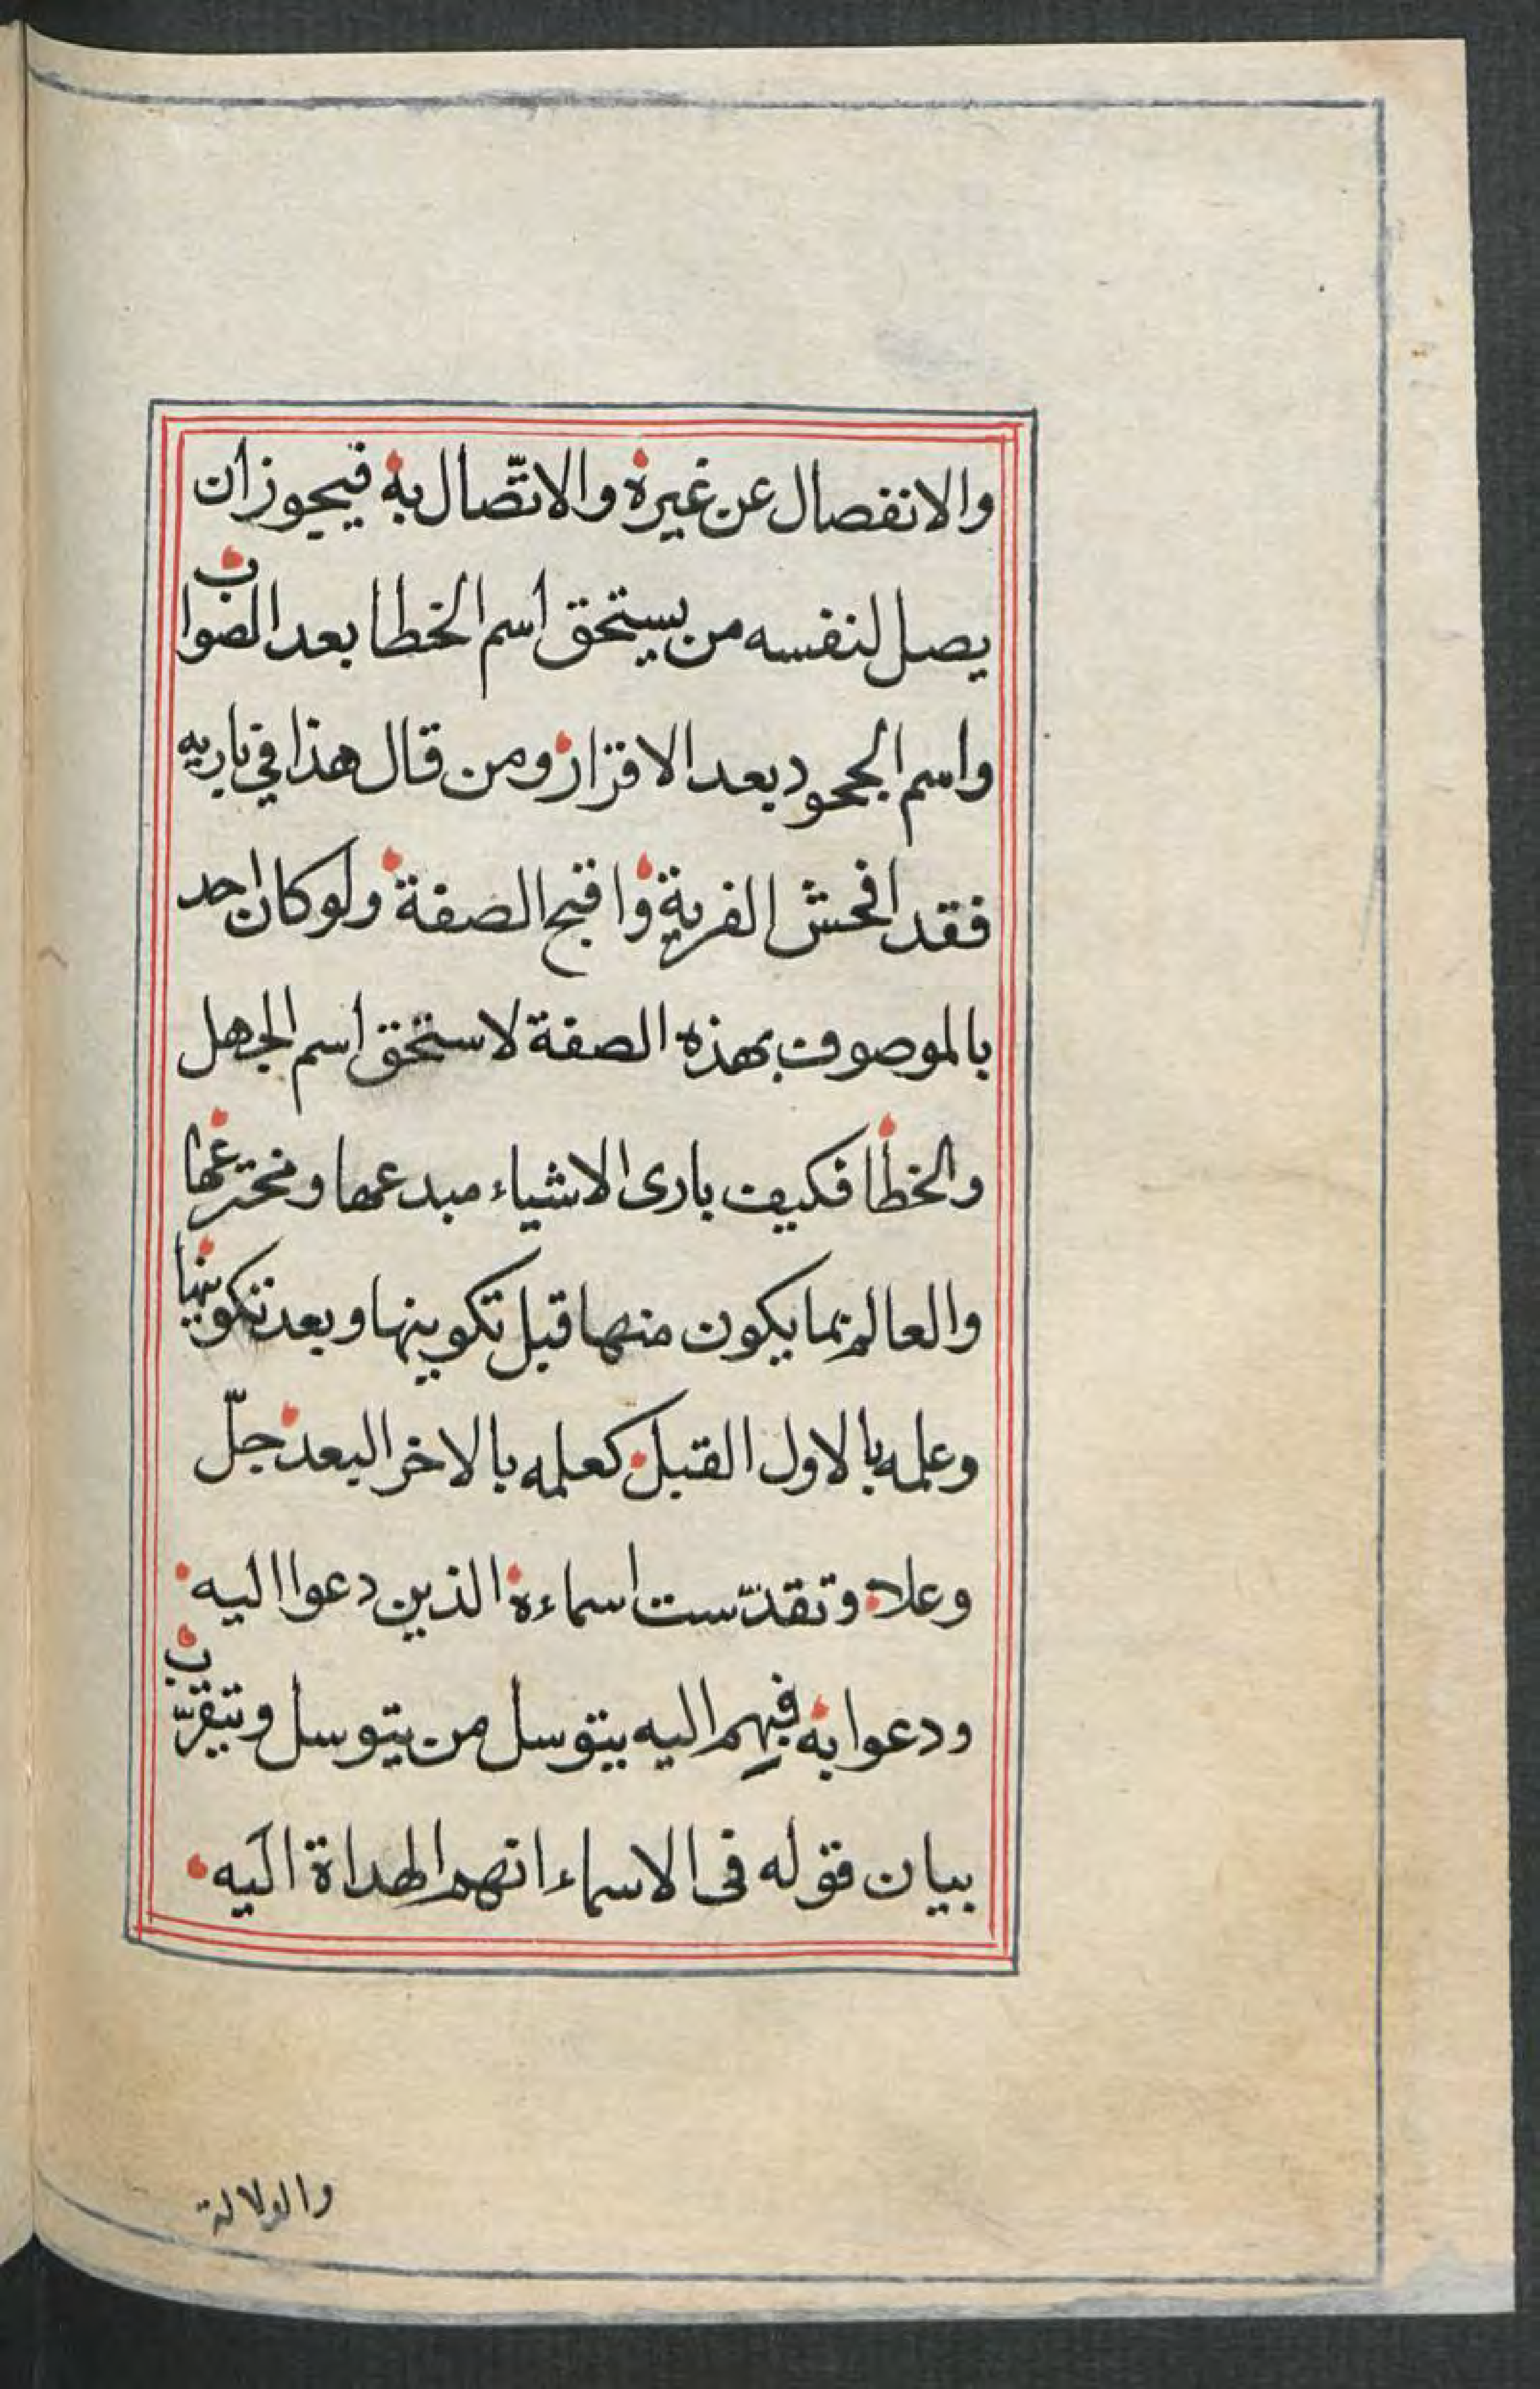 والانفصال عن غيره والاتّصال به فيجوز أن
يصل لنفسه من يستحق اسم الخطا بعد الصواب
واسم الجحود بعد الاقرار ومن قال هذا في باريه
فقد افحش الفرية واقبح الصفة ولو كان احد
بالموصوف بهذه الصفة لاستحق اسم الجهل
والخطا فكيف بارى الاشياء مبدعها ومخترعها
والعالم بما يكون منها قبل تكوينها وبعد تكوينها
وعلمه بالاول القبل كعلمه بالاخر البعد جلّ
وعلا وتقدّست اسماءه الذين دعوا اليه
ودعوا به فبهم اليه يتوسل من يتوسل ويتقرّب
بيان قوله فى الاسماء انهم الهداة اليه
والدلالة